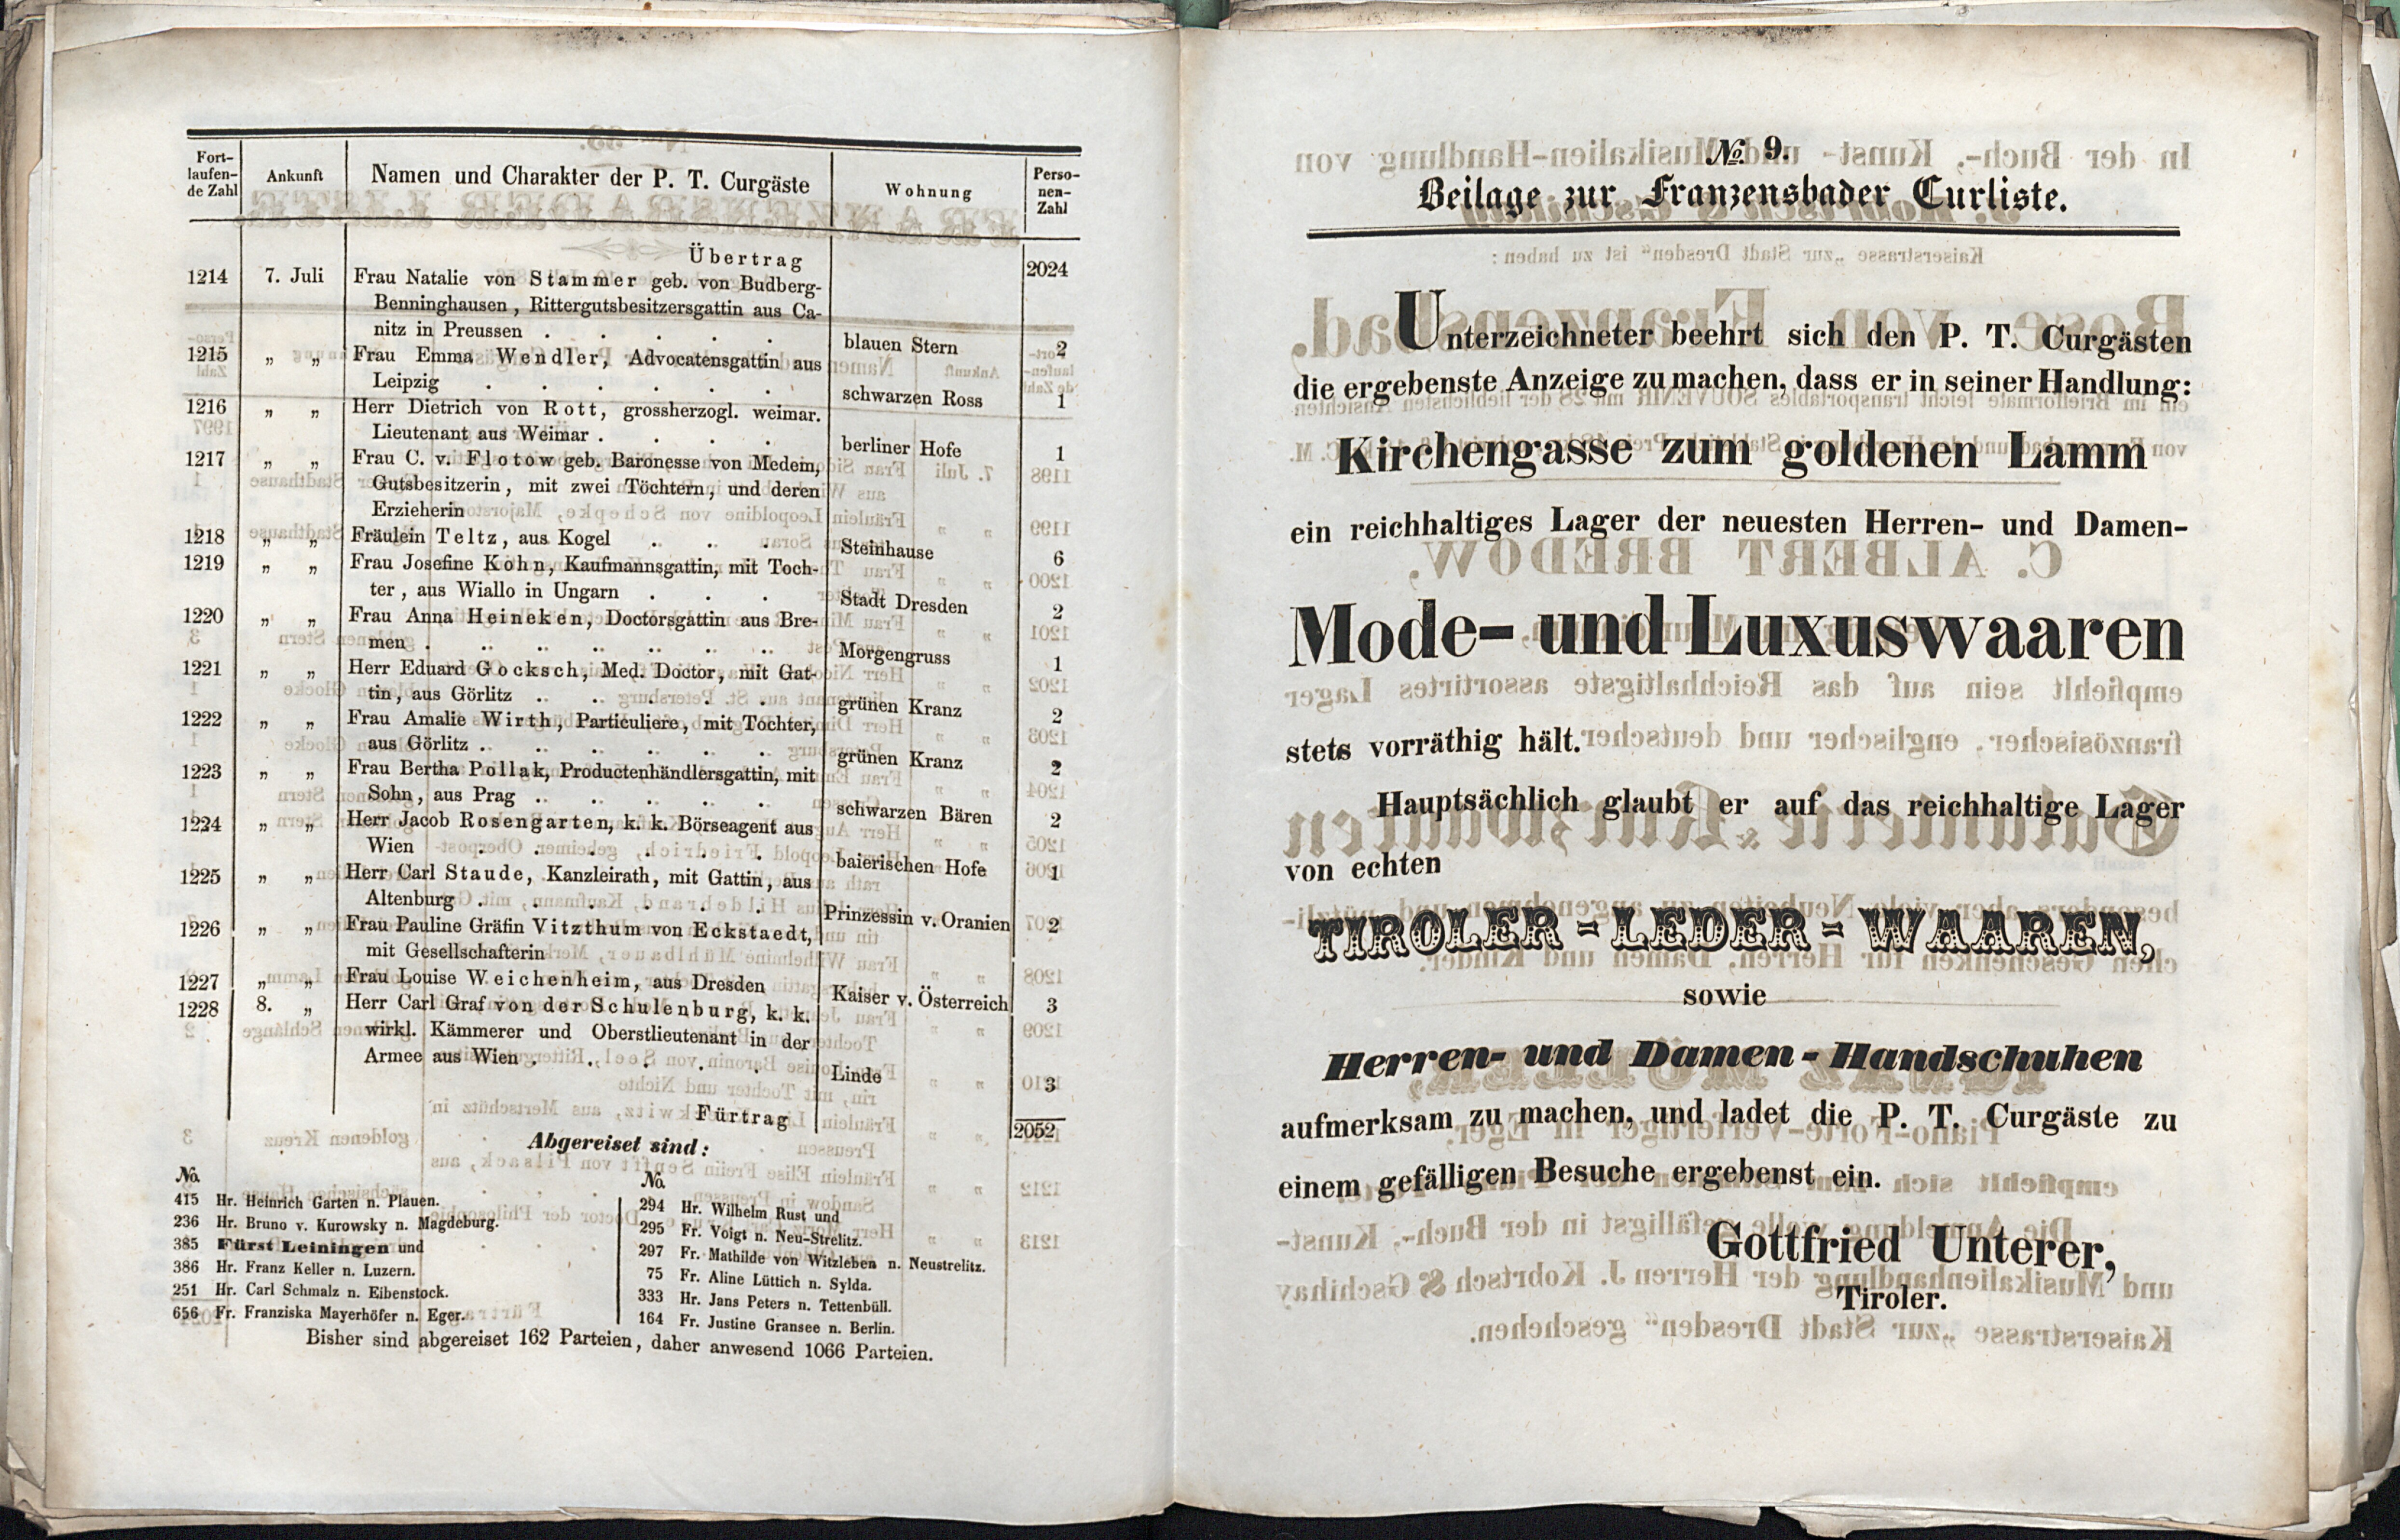 Fort-
laufen-
de Zahl
Ankunft
Namen und Charakter der P. T. Curgäste
Wohnung
Perso-
nen-
Zahl
Übertrag 2024
1214 7. Juli Frau Natalie von Stammer geb. von Budberg-
Benninghausen, Rittergutsbesitzersgattin aus Ca-
nitz in Preussen . . . . . blauen Stern 2
1215 „ „ Frau Emma Wendler, Advocatensgattin aus
Leipzig . . . . . . schwarzen Ross 1
1216 „ „ Herr Dietrich von Rott, grossherzogl. weimar.
Lieutenant aus Weimar . . . . berliner Hofe 1
1217 „ „ Frau C. v. Flotow geb. Baronesse von Medem,
Gutsbesitzerin, mit zwei Töchtern, und deren
Erzieherin
1218 „ „ Fräulein Teltz, aus Kogel . . . Steinhause 6
1219 „ „ Frau Josefine Kohn, Kaufmannsgattin, mit Toch-
ter, aus Wiallo in Ungarn . . . Stadt Dresden 2
1220 „ „ Frau Anna Heineken, Doctorsgattin aus Bre-
men . . . . . . . Morgengruss 1
1221 „ „ Herr Eduard Gocksch, Med. Doctor, mit Gat-
tin, aus Görlitz . . . . . grünen Kranz 2
1222 „ „ Frau Amalie Wirth, Particuliere, mit Tochter,
aus Görlitz . . . . . . grünen Kranz 2
1223 „ „ Frau Bertha Pollak, Productenhändlersgattin, mit
Sohn, aus Prag . . . . . schwarzen Bären 2
1224 „ „ Herr Jacob Rosengarten, k. k. Börseagent aus
Wien . . . . . . baierischen Hofe 1
1225 „ „ Herr Carl Staude, Kanzleirath, mit Gattin, aus
Altenburg . . . . . . Prinzessin v. Oranien 2
1226 „ „ Frau Pauline Gräfin Vitzthum von Eckstaedt,
mit Gesellschafterin
1227 „ „ Frau Louise Weichenheim, aus Dresden Kaiser v. Österreich 3
1228 8. „ Herr Carl Graf von der Schulenburg, k. k.
wirkl. Kämmerer und Oberstlieutenant in der
Armee aus Wien . . . . . Linde 3
Fürtrag 2052
Abgereiset sind:
No.
415 Hr. Heinrich Garten n. Plauen.
236 Hr. Bruno v. Kurowsky n. Magdeburg.
385 Fürst Leiningen und
386 Hr. Franz Keller n. Luzern.
251 Hr. Carl Schmalz n. Eibenstock.
656 Fr. Franziska Mayerhöfer n. Eger.
No.
294 Hr. Wilhelm Rust und
295 Fr. Voigt n. Neu-Strelitz.
297 Fr. Mathilde von Witzleben n. Neustrelitz.
75 Fr. Aline Lüttich n. Sylda.
333 Hr. Jans Peters n. Tettenbüll.
164 Fr. Justine Gransee n. Berlin.
Bisher sind abgereiset 162 Parteien, daher anwesend 1066 Parteien.
№ 9.
Beilage zur Franzensbader Curliste.
Unterzeichneter beehrt sich den P. T. Curgästen
die ergebenste Anzeige zu machen, dass er in seiner Handlung:
Kirchengasse zum goldenen Lamm
ein reichhaltiges Lager der neuesten Herren- und Damen-
Mode- und Luxuswaaren
stets vorräthig hält.
Hauptsächlich glaubt er auf das reichhaltige Lager
von echten
TIROLER-LEDER-WAAREN,
sowie
Herren- und Damen-Handschuhen
aufmerksam zu machen, und ladet die P. T. Curgäste zu
einem gefälligen Besuche ergebenst ein.
Gottfried Unterer,
Tiroler.